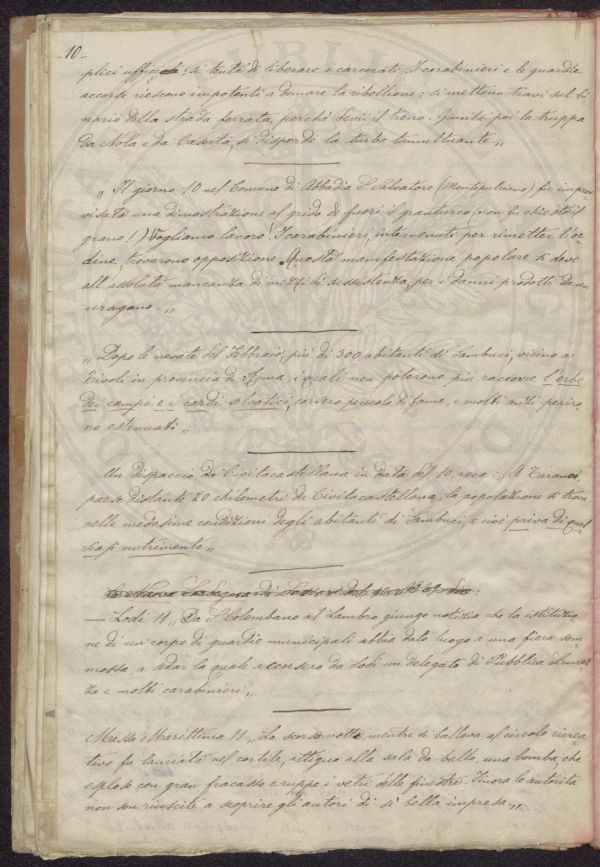 -10-
plici ufficj; si tentò di liberare i carcerati. I carabinieri e le guardie
accorse riescono impotenti a domare la ribellione; si mettono travi sul bi
nario della strada ferrata, perchè devii il treno. Giunta poi la truppa
da Nola e da Caserta, si disperde la turba tumultuante „
„ Il giorno 10 nel Comune di Abbadia S. Salvatore (Montepulciano) fu improv
visata una dimostrazione al grido di fuori il granturco (non fu chiesto il
grano!) Vogliamo lavoro! I carabinieri, intervenuti per rimetter l'or
dine, trovarono opposizione. Questa manifestazione popolare si deve
all'assoluta mancanza di mezzi di sussistenza, per i danni prodotti da un
uragano. „
„ Dopo le nevate del Febbraio, più di 300 abitanti di Sambuci, vicino a
Tivoli in provincia di Roma, i quali non poterono più raccorre l'erbe
dei campi e i cardi selvatici, corsero pericolo di fame, e molti anzi periro
no estenuati „
Un dispaccio da Civitacastellana in data del 10 reca: „ A Tarano,
paese distante 20 chilometri da Civitacastellana, la popolazione si trova
nelle medesime condizioni degli abitanti di Sambuci, e cioè priva di qual
siasi nutrimento „
La Nuova Sardegna di Sassari del
— Lodi 11 „ Da S. Colombano al Lambro giunge notizia che la istituzio
ne di un corpo di guardie municipali abbia dato luogo a una fiera som
mossa, a sedar la quale accorsero da Lodi un delegato di Pubblica Sicurez
za e molti carabinieri „
Massa Marittima 11 „ La scorsa notte, mentre si ballava al circolo ricrea
tivo fu lanciata nel cortile, attiguo alla sala da ballo, una bomba, che
esplose con gran fracasso e ruppe i vetri delle finestre. Finora le autorità
non son riuscite a scoprire gli autori di sì bella impresa „